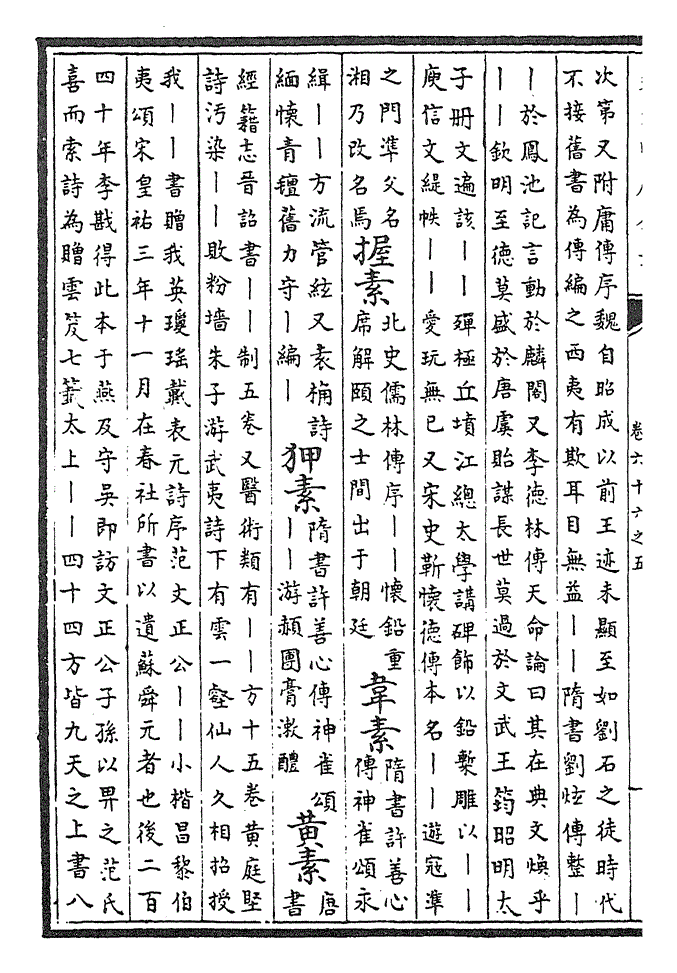 卷六十六之五
次第又附庸傳序魏自昭成以前王迹未顯至如劉石之徒時代
不接舊書為傳編之西夷有欺耳目無益——隋書劉炫傳整—
—於鳳池記言動於麟閣又李德林傳天命論曰其在典文煥乎
——欽明至德莫盛於唐虞貽謀長世莫過於文武王筠昭明太
子冊文遍該——殫極丘墳江總太學講碑飾以鉛槧雕以——
庾信文緹帙——愛玩無已又宋史靳懷德傳本名——遊冦準
之門準父名
湘乃改名焉
握素
北史儒林傳序——懷鉛重
席解頤之士間出于朝廷
韋素
隋書許善心
傳神雀頌永
緝——方流管絃又袁桷詩
緬懷青氊舊力守—編—
狎素
隋書許善心傳神雀頌
——游頳圑膏漱醴
黄素
唐
書
經籍志晉詔書——制五卷又醫術類有——方十五卷黄庭堅
詩污染——敗粉墻朱子游武夷詩下有雲一壑仙人久相招授
我——書贈我英瓊瑤戴表元詩序范文正公——小楷昌黎伯
夷頌宋皇祐三年十一月在春社所書以遺蘇舜元者也後二百
四十年李戡得此本于燕及守吳即訪文正公子孫以畀之范氏
喜而索詩為贈雲笈七籖太上——四十四方皆九天之上書八